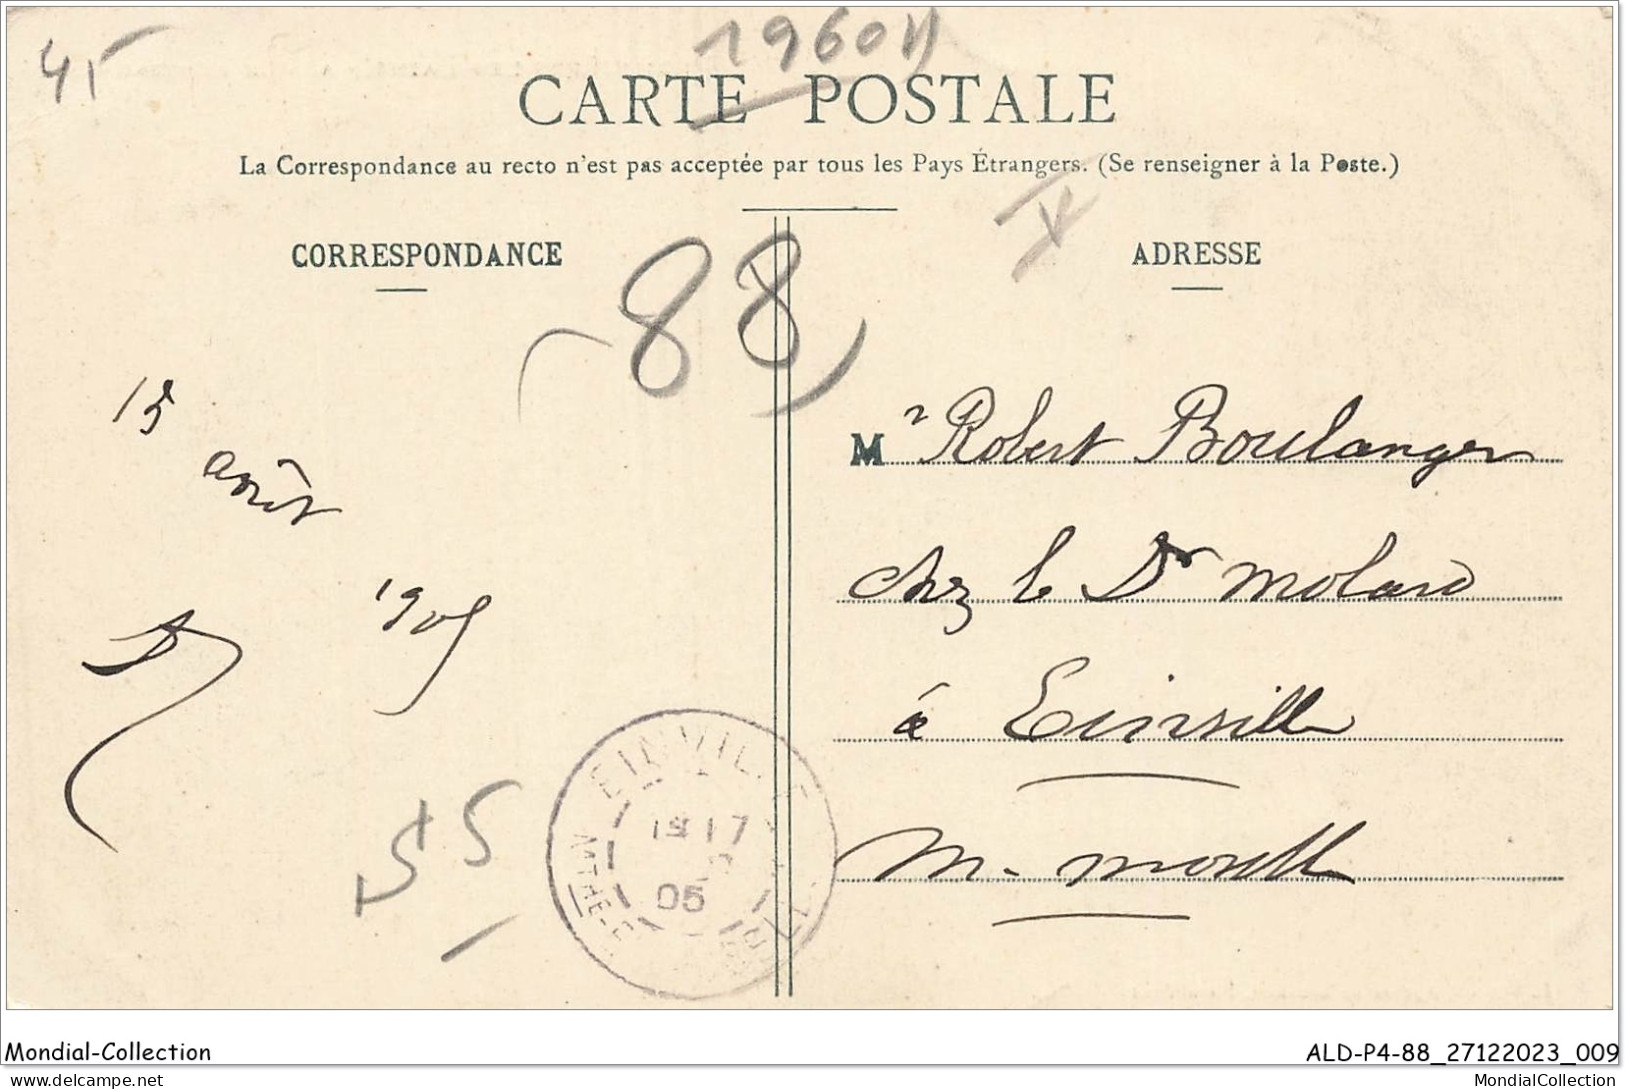 45
1960N
CARTE POSTALE
La Correspondance au recto n'est pas acceptée par tous les Pays Étrangers. (Se renseigner à la Poste.)
CORRESPONDANCE
ADRESSE
88
15
août
1905
Mr Robert Boulanger
chez le Dr Molard
à Einville
M. Moselle
55
EINVILLE
17
05
MTHE-
Mondial-Collection
ALD-P4-88_27122023_009
delcampe.net
MondialCollection